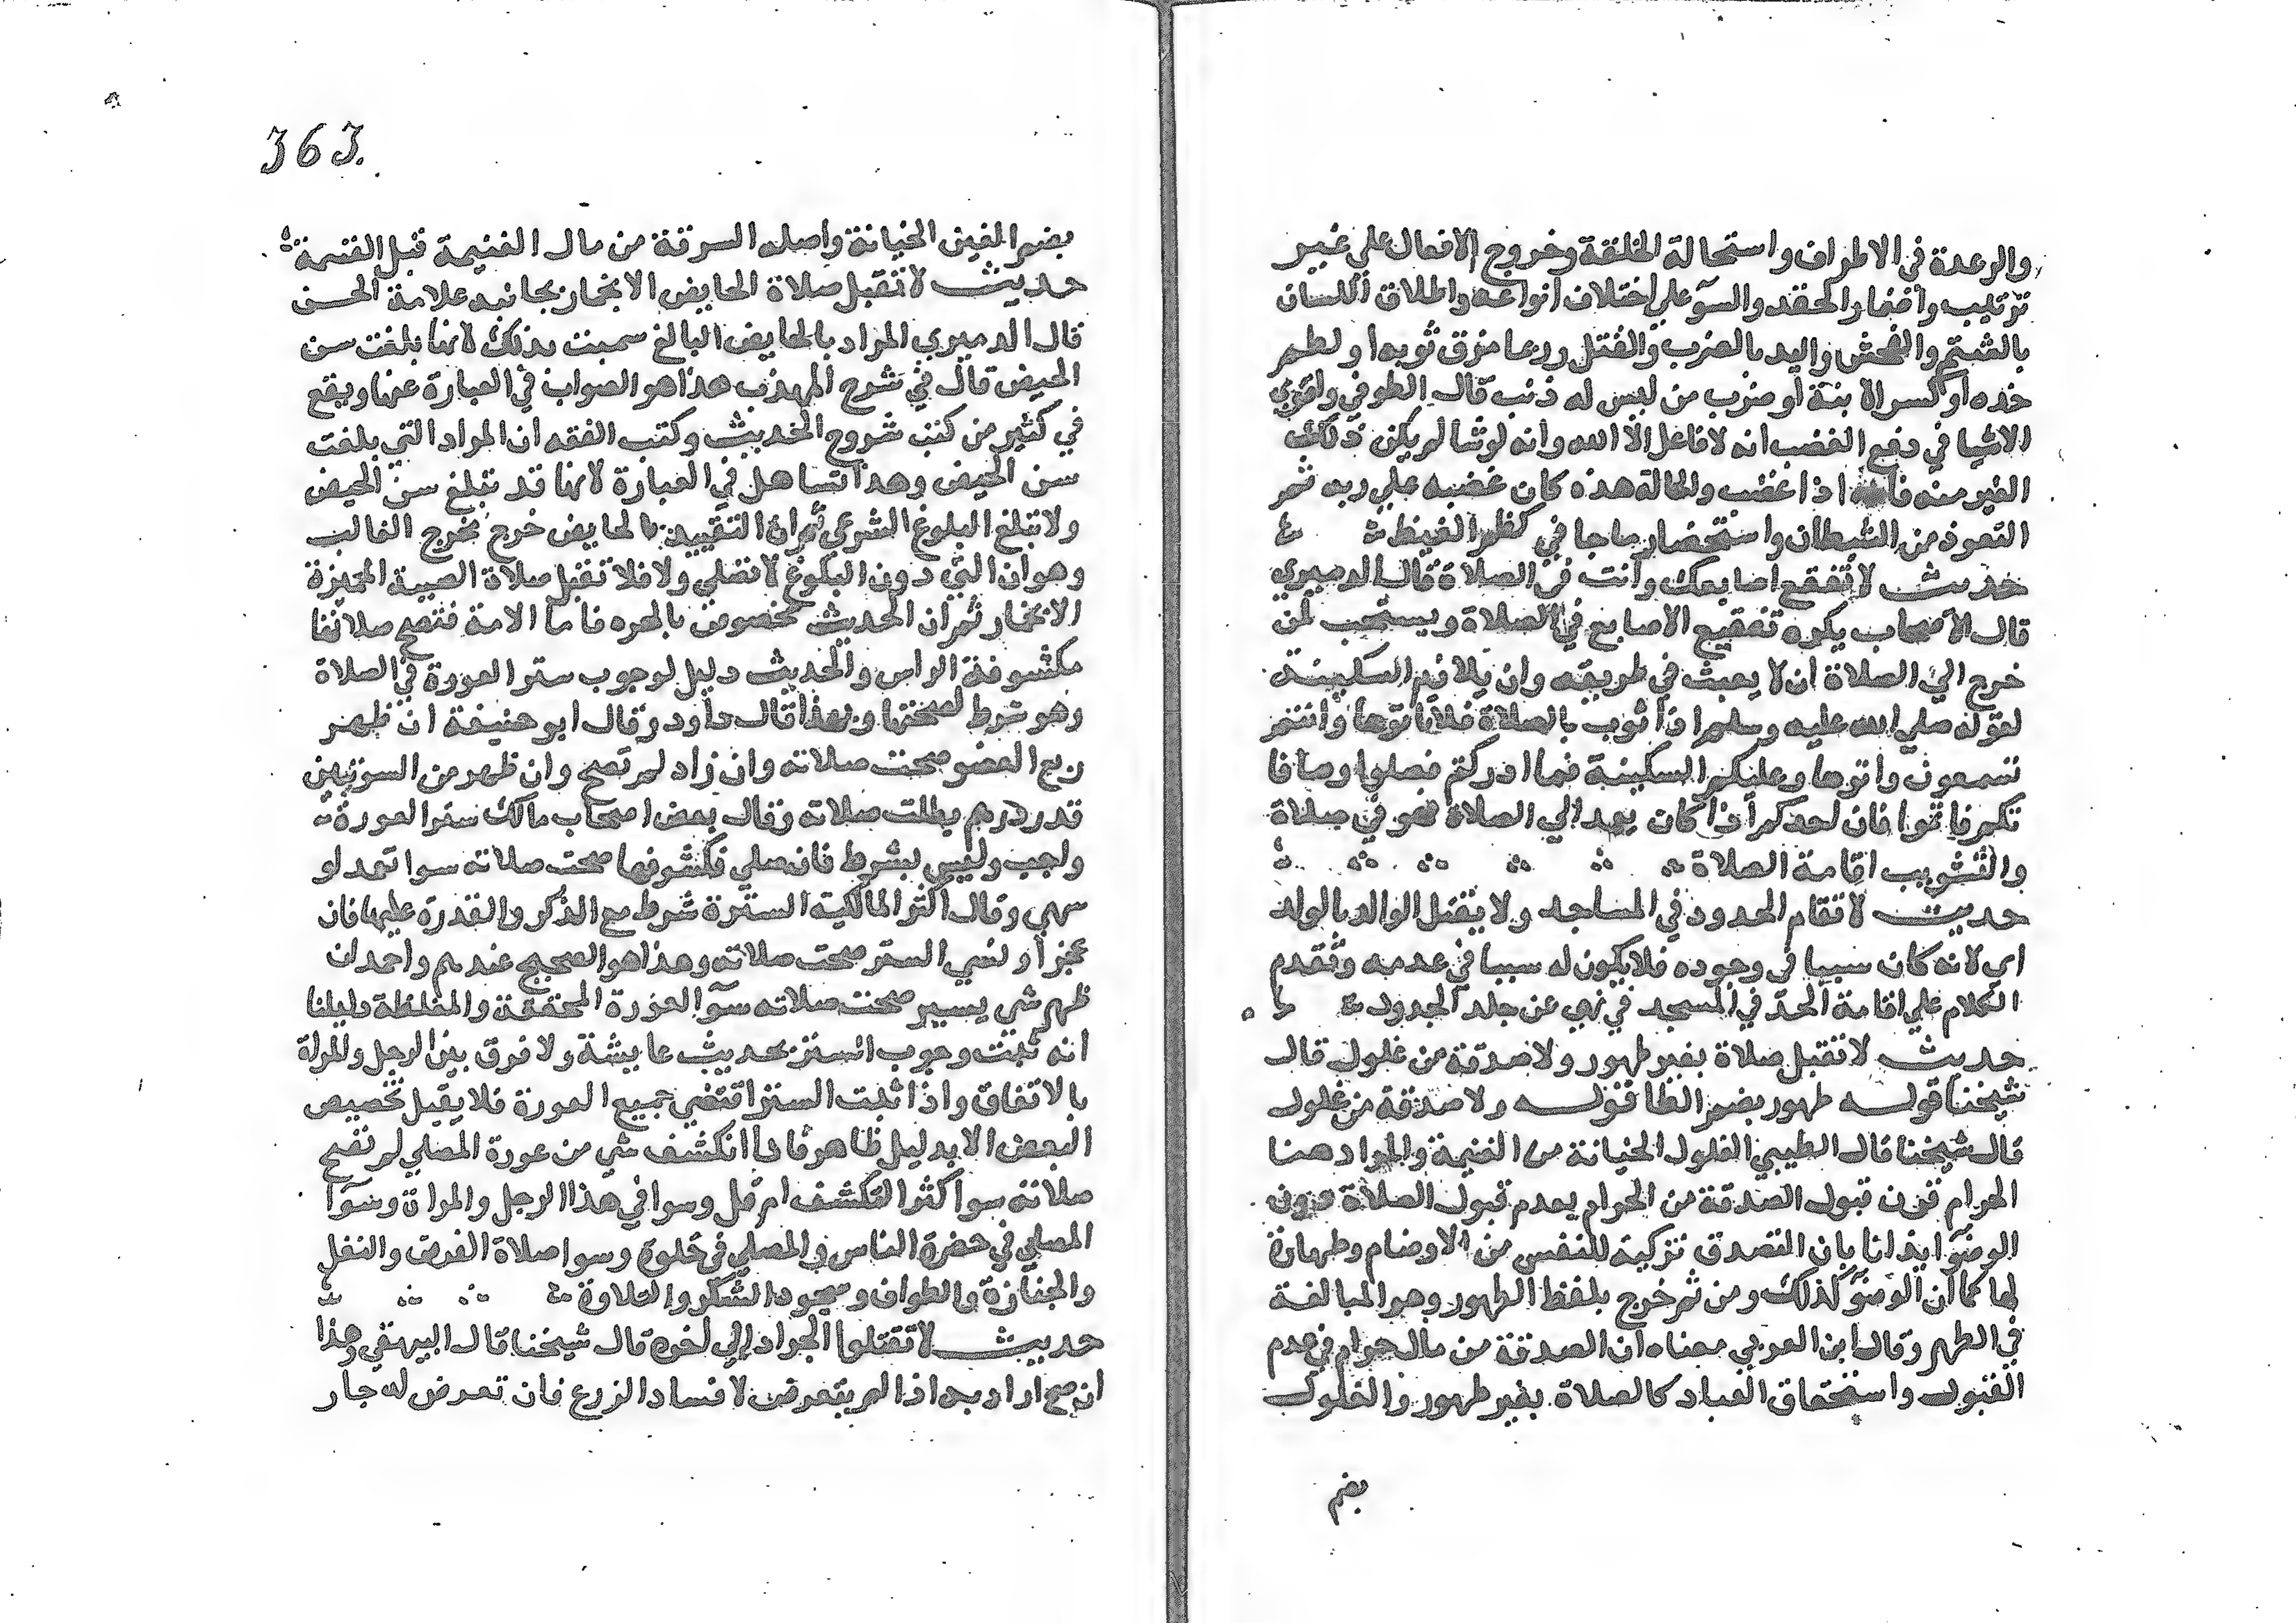 والرعدة في الاطراف واستحالة الخلقة وخروج الافعال علي غير
ترتيب واضمار الحقد والسوء علي اختلاف انواعه واطلاق اللسان
بالشتم والفحش واليد بالضرب والقتل وربما مزق ثوبه او لطم
خده او كسر الانية او ضرب من ليس له ذنب قال الطوفي واقوي
الاشيا في دفع الغضب انه لا فاعل الا الله وانه لو شا لم يكن ذلك
الغير منه فانه اذا غضب والحالة هذه كان غضبه علي ربه ثم
التعوذ من الشيطان واستحضار ما جا في كظم الغيظ
حديث لا تفقع اصابعك وانت في الصلاة قال الدميري
قال الاصحاب يكره تفقيع الاصابع في الصلاة ويستحب لمن
خرج الي الصلاة ان لا يعبث في طريقه وان يلازم السكينة
لقوله صلي الله عليه وسلم اذا ثوب بالصلاة فلا تاتوها وانتم
تسعون واتوها وعليكم السكينة فما ادركتم فصلوا وما فا
تكم فاتموا فان احدكم اذا كان يعمد الي الصلاة فهو في صلاة
والتثويب اقامة الصلاة
حديث لا تقام الحدود في المساجد ولا يقتل الوالد بالولد
اي لانه كان سببا في وجوده فلا يكون له سببا في عدمه وتقدم
الكلام علي اقامة الحد في المسجد في نهي عن جلد الحدود
حديث لا تقبل صلاة بغير طهور ولا صدقة من غلول قال
شيخنا قوله طهور بضم الطا قوله ولا صدقة من غلول
قال شيخنا قال الطيبي الغلول الخيانة من الغنيمة والمراد هنا
الحرام قرن قبول الصدقة من الحرام بعدم قبول الصلاة دون
الوضوء ايذانا بان التصدق تزكية للنفس من الاوضام وطهارة
لها كما ان الوضوء كذلك ومن ثم خرج بلفظ الطهور وهو المبالغة
في الطهر وقال ابن العربي معناه ان الصدقة من مال حرام في عدم
القبول واستحقاق العباد كالصلاة بغير طهور والغلول
بضم
363
بضم الغين الخيانة واصله السرقة من مال الغنيمة قبل القسمة
حديث لا تقبل صلاة الحايض الا بخمار بجانبه علامة الحسن
قال الدميري المراد بالحايض البالغ سميت بذلك لانها بلغت سن
الحيض قال في شرح المهذب هذا هو الصواب في العبارة عنها ويقع
في كثير من كتب شروح الحديث وكتب الفقه ان المراد التي بلغت
سن الحيض وهذا تساهل في العبارة لانها قد تبلغ سن الحيض
ولا تبلغ البلوغ الشرعي ثم ان التقييد بالحايض خرج مخرج الغالب
وهو ان التي دون البلوغ لا تصلي ولا فلا تقبل صلاة الصبية المميزة
الا بخمار ثم ان الحديث مخصوص بالحرة فاما الامة فتصح صلاتها
مكشوفة الراس والحديث دليل لوجوب ستر العورة في الصلاة
وهو شرط لصحتها وبهذا قال داود وقال ابو حنيفة ان ظهر
ربع العضو صحت صلاته وان زاد لم تصح وان ظهر من السوءتين
قدر درهم بطلت صلاته وقال بعض اصحاب مالك ستر العورة
واجب وليس بشرط فان صلي مكشوفها صحت صلاته سوا تعمد او
سهي وقال اكثر المالكية السترة شرط مع الذكر والقدرة عليها فان
عجز او نسي الستر صحت صلاته وهذا هو الصحيح عندهم واحمد ان
ظهر شي يسير صحت صلاته سوآ العورة المخففة والمغلظة دليلنا
انه ثبت وجوب الستر بحديث عايشة ولا فرق بين الرجل والمراة
بالاتفاق واذا ثبت الستر اقتضي جميع العورة فلا يقبل تخصيص
البعض الا بدليل ظاهر فاذا انكشف شي من عورة المصلي لم تصح
صلاته سوا كثر التكشف ام قل وسوا في هذا الرجل والمراة وسوآ
المصلي في حضرة الناس والمصلي في خلوة وسوا صلاة الفرض والنفل
والجنازة والطواف وسجود الشكر والتلاوة
حديث لا تقتلوا الجراد الي اخره قال شيخنا قال البيهقي وهذا
ان صح اراد به اذا لم يتعرض لافساد الزرع فان تعرض له جار